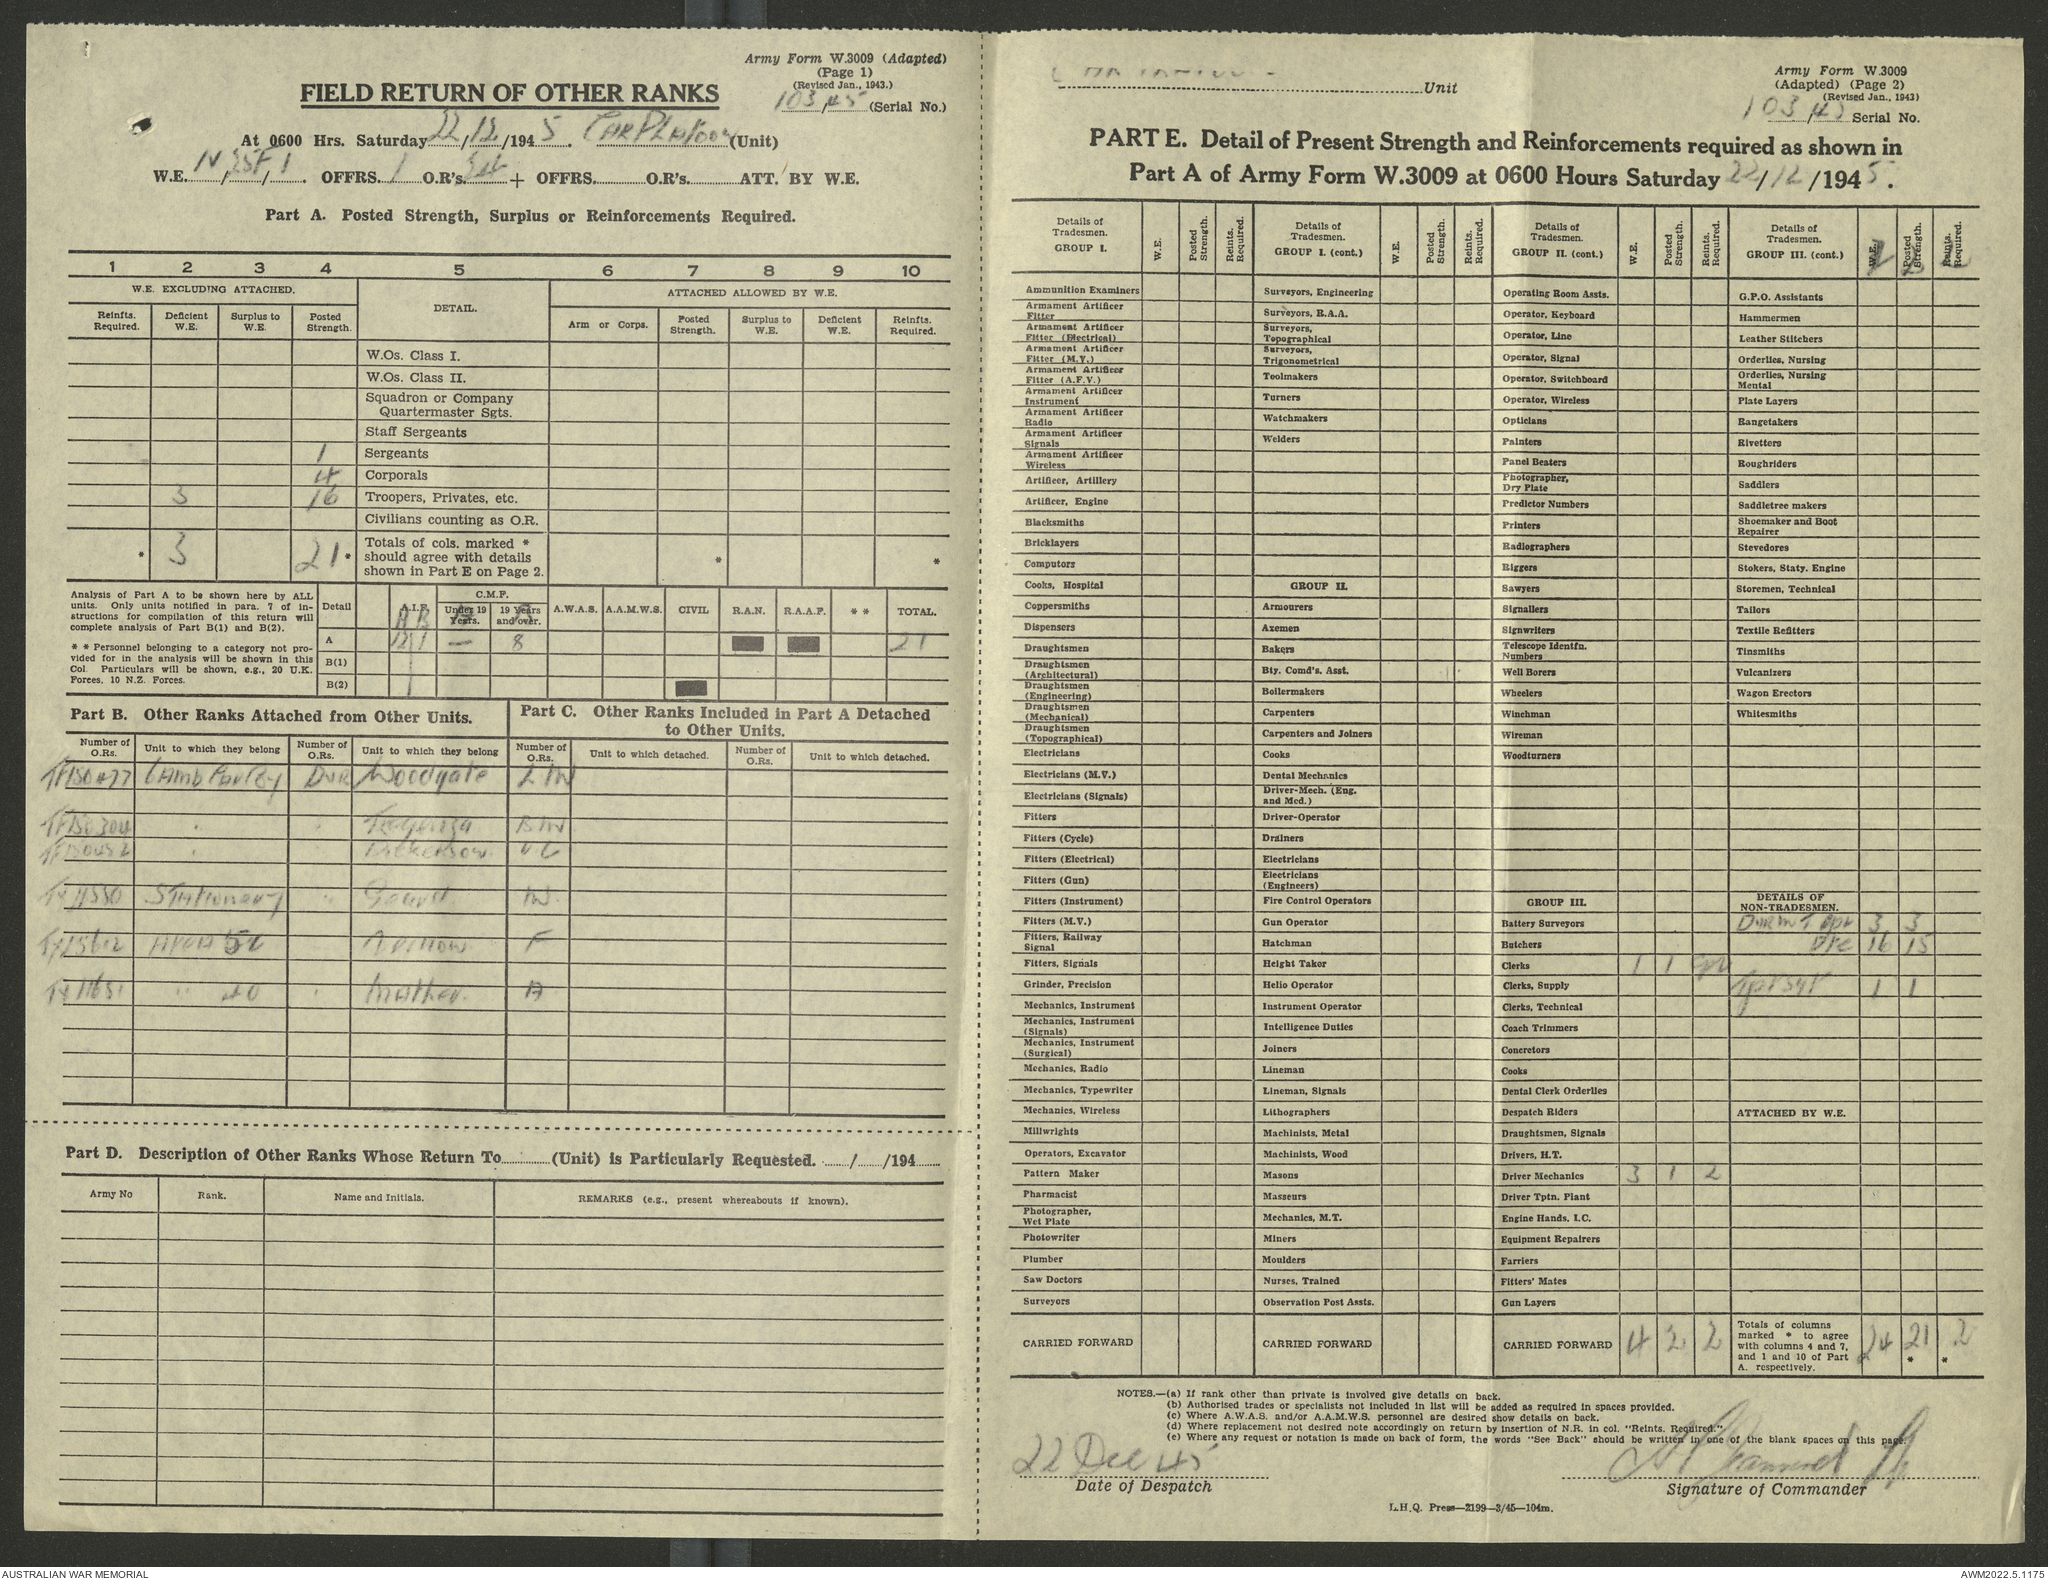 Army Form W.3009 (Adapted)
(Page 1)
(Revised Jan., 1943.)
FIELD RETURN OF OTHER RANKS
103/45 (Serial No.)
At 0600 Hrs. Saturday 22/12/1945. Car Platoon (Unit)
W.E. OFFRS. 1 O.R's. 24 + OFFRS. O.R's. ATT. BY W.E.
Part A. Posted Strength, Surplus or Reinforcements Required.
1 2 3 4 5 6 7 8 9 10
W.E. EXCLUDING ATTACHED. DETAIL. ATTACHED ALLOWED BY W.E.
Reinfts. Required. Deficient W.E. Surplus to W.E. Posted Strength. Arm or Corps. Posted Strength. Surplus to W.E. Deficient W.E. Reinfts. Required.
W.Os. Class I.
W.Os. Class II.
Squadron or Company Quartermaster Sgts.
Staff Sergeants
1 Sergeants
4 Corporals
3 16 Troopers, Privates, etc.
Civilians counting as O.R.
* 3 21* Totals of cols. marked * should agree with details shown in Part E on Page 2. * *
Analysis of Part A to be shown here by ALL
units. Only units notified in para. 7 of in-
structions for compilation of this return will
complete analysis of Part B(1) and B(2).
* * Personnel belonging to a category not pro-
vided for in the analysis will be shown in this
Col. Particulars will be shown, e.g., 20 U.K.
Forces, 10 N.Z. Forces.
Detail A.I.F. C.M.F. Under 19 Years. 19 Years and over. A.W.A.S. A.A.M.W.S. CIVIL R.A.N. R.A.A.F. * * TOTAL.
A B
A 12 1 — 8 21
B(1)
B(2)
Part B. Other Ranks Attached from Other Units.
Part C. Other Ranks Included in Part A Detached to Other Units.
Number of O.Rs. Unit to which they belong Number of O.Rs. Unit to which they belong Number of O.Rs. Unit to which detached. Number of O.Rs. Unit to which detached.
TF150477 Dvr Woodgate
TF150304
Stationery
F
Mather A
Part D. Description of Other Ranks Whose Return To (Unit) is Particularly Requested. / /194
Army No Rank. Name and Initials. REMARKS (e.g., present whereabouts if known).
Unit
Army Form W.3009
(Adapted) (Page 2)
(Revised Jan., 1943)
103/45 Serial No.
PART E. Detail of Present Strength and Reinforcements required as shown in
Part A of Army Form W.3009 at 0600 Hours Saturday 22/12/1945.
Details of Tradesmen. GROUP I. W.E. Posted Strength. Reints. Required.
Ammunition Examiners
Armament Artificer Fitter
Armament Artificer Fitter (Electrical)
Armament Artificer Fitter (M.V.)
Armament Artificer Fitter (A.F.V.)
Armament Artificer Instrument
Armament Artificer Radio
Armament Artificer Signals
Armament Artificer Wireless
Artificer, Artillery
Artificer, Engine
Blacksmiths
Bricklayers
Computors
Cooks, Hospital
Coppersmiths
Dispensers
Draughtsmen
Draughtsmen (Architectural)
Draughtsmen (Engineering)
Draughtsmen (Mechanical)
Draughtsmen (Topographical)
Electricians
Electricians (M.V.)
Electricians (Signals)
Fitters
Fitters (Cycle)
Fitters (Electrical)
Fitters (Gun)
Fitters (Instrument)
Fitters (M.V.)
Fitters, Railway Signal
Fitters, Signals
Grinder, Precision
Mechanics, Instrument
Mechanics, Instrument (Signals)
Mechanics, Instrument (Surgical)
Mechanics, Radio
Mechanics, Typewriter
Mechanics, Wireless
Millwrights
Operators, Excavator
Pattern Maker
Pharmacist
Photographer, Wet Plate
Photowriter
Plumber
Saw Doctors
Surveyors
CARRIED FORWARD
Details of Tradesmen. GROUP I. (cont.) W.E. Posted Strength. Reints. Required.
Surveyors, Engineering
Surveyors, R.A.A.
Surveyors, Topographical
Surveyors, Trigonometrical
Toolmakers
Turners
Watchmakers
Welders
GROUP II.
Armourers
Axemen
Bakers
Bty. Comd's. Asst.
Boilermakers
Carpenters
Carpenters and Joiners
Cooks
Dental Mechanics
Driver-Mech. (Eng. and Med.)
Driver-Operator
Drainers
Electricians
Electricians (Engineers)
Fire Control Operators
Gun Operator
Hatchman
Height Taker
Helio Operator
Instrument Operator
Intelligence Duties
Joiners
Lineman
Lineman, Signals
Lithographers
Machinists, Metal
Machinists, Wood
Masons
Masseurs
Mechanics, M.T.
Miners
Moulders
Nurses, Trained
Observation Post Assts.
CARRIED FORWARD
Details of Tradesmen. GROUP II. (cont.) W.E. Posted Strength. Reints. Required.
Operating Room Assts.
Operator, Keyboard
Operator, Line
Operator, Signal
Operator, Switchboard
Operator, Wireless
Opticians
Painters
Panel Beaters
Photographer, Dry Plate
Predictor Numbers
Printers
Radiographers
Riggers
Sawyers
Signallers
Signwriters
Telescope Identfn. Numbers
Well Borers
Wheelers
Winchman
Wireman
Woodturners
GROUP III.
Battery Surveyors
Butchers
Clerks 1 1
Clerks, Supply
Clerks, Technical
Coach Trimmers
Concretors
Cooks
Dental Clerk Orderlies
Despatch Riders
Draughtsmen, Signals
Drivers, H.T.
Driver Mechanics 3 1 2
Driver Tptn. Plant
Engine Hands, I.C.
Equipment Repairers
Farriers
Fitters' Mates
Gun Layers
CARRIED FORWARD 4 2 2
Details of Tradesmen. GROUP III. (cont.) W.E. Posted Strength. Reints. Required.
G.P.O. Assistants
Hammermen
Leather Stitchers
Orderlies, Nursing
Orderlies, Nursing Mental
Plate Layers
Rangetakers
Rivetters
Roughriders
Saddlers
Saddletree makers
Shoemaker and Boot Repairer
Stevedores
Stokers, Staty. Engine
Storemen, Technical
Tailors
Textile Refitters
Tinsmiths
Vulcanizers
Wagon Erectors
Whitesmiths
DETAILS OF NON-TRADESMEN.
3 3
Pte 16 15
Tpt Sgt 1 1
ATTACHED BY W.E.
Totals of columns marked * to agree with columns 4 and 7, and 1 and 10 of Part A. respectively. 24 21 * 2 *
NOTES.—(a) If rank other than private is involved give details on back.
(b) Authorised trades or specialists not included in list will be added as required in spaces provided.
(c) Where A.W.A.S. and/or A.A.M.W.S. personnel are desired show details on back.
(d) Where replacement not desired note accordingly on return by insertion of N.R. in col. "Reints. Required."
(e) Where any request or notation is made on back of form, the words "See Back" should be written in one of the blank spaces on this page.
22 Dec 45
Date of Despatch
Signature of Commander
L.H.Q. Press—2199—3/45—104m.
AUSTRALIAN WAR MEMORIAL
AWM2022.5.1175